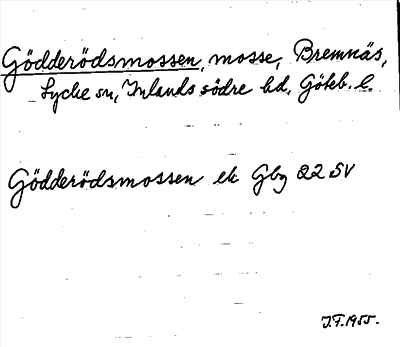 Gödderödsmossen, mosse, Bremnäs,
Lycke sn, Inlands södre hd, Göteb. l.
Gödderödsmossen ek Gbg 22 SV
J.F. 1955.